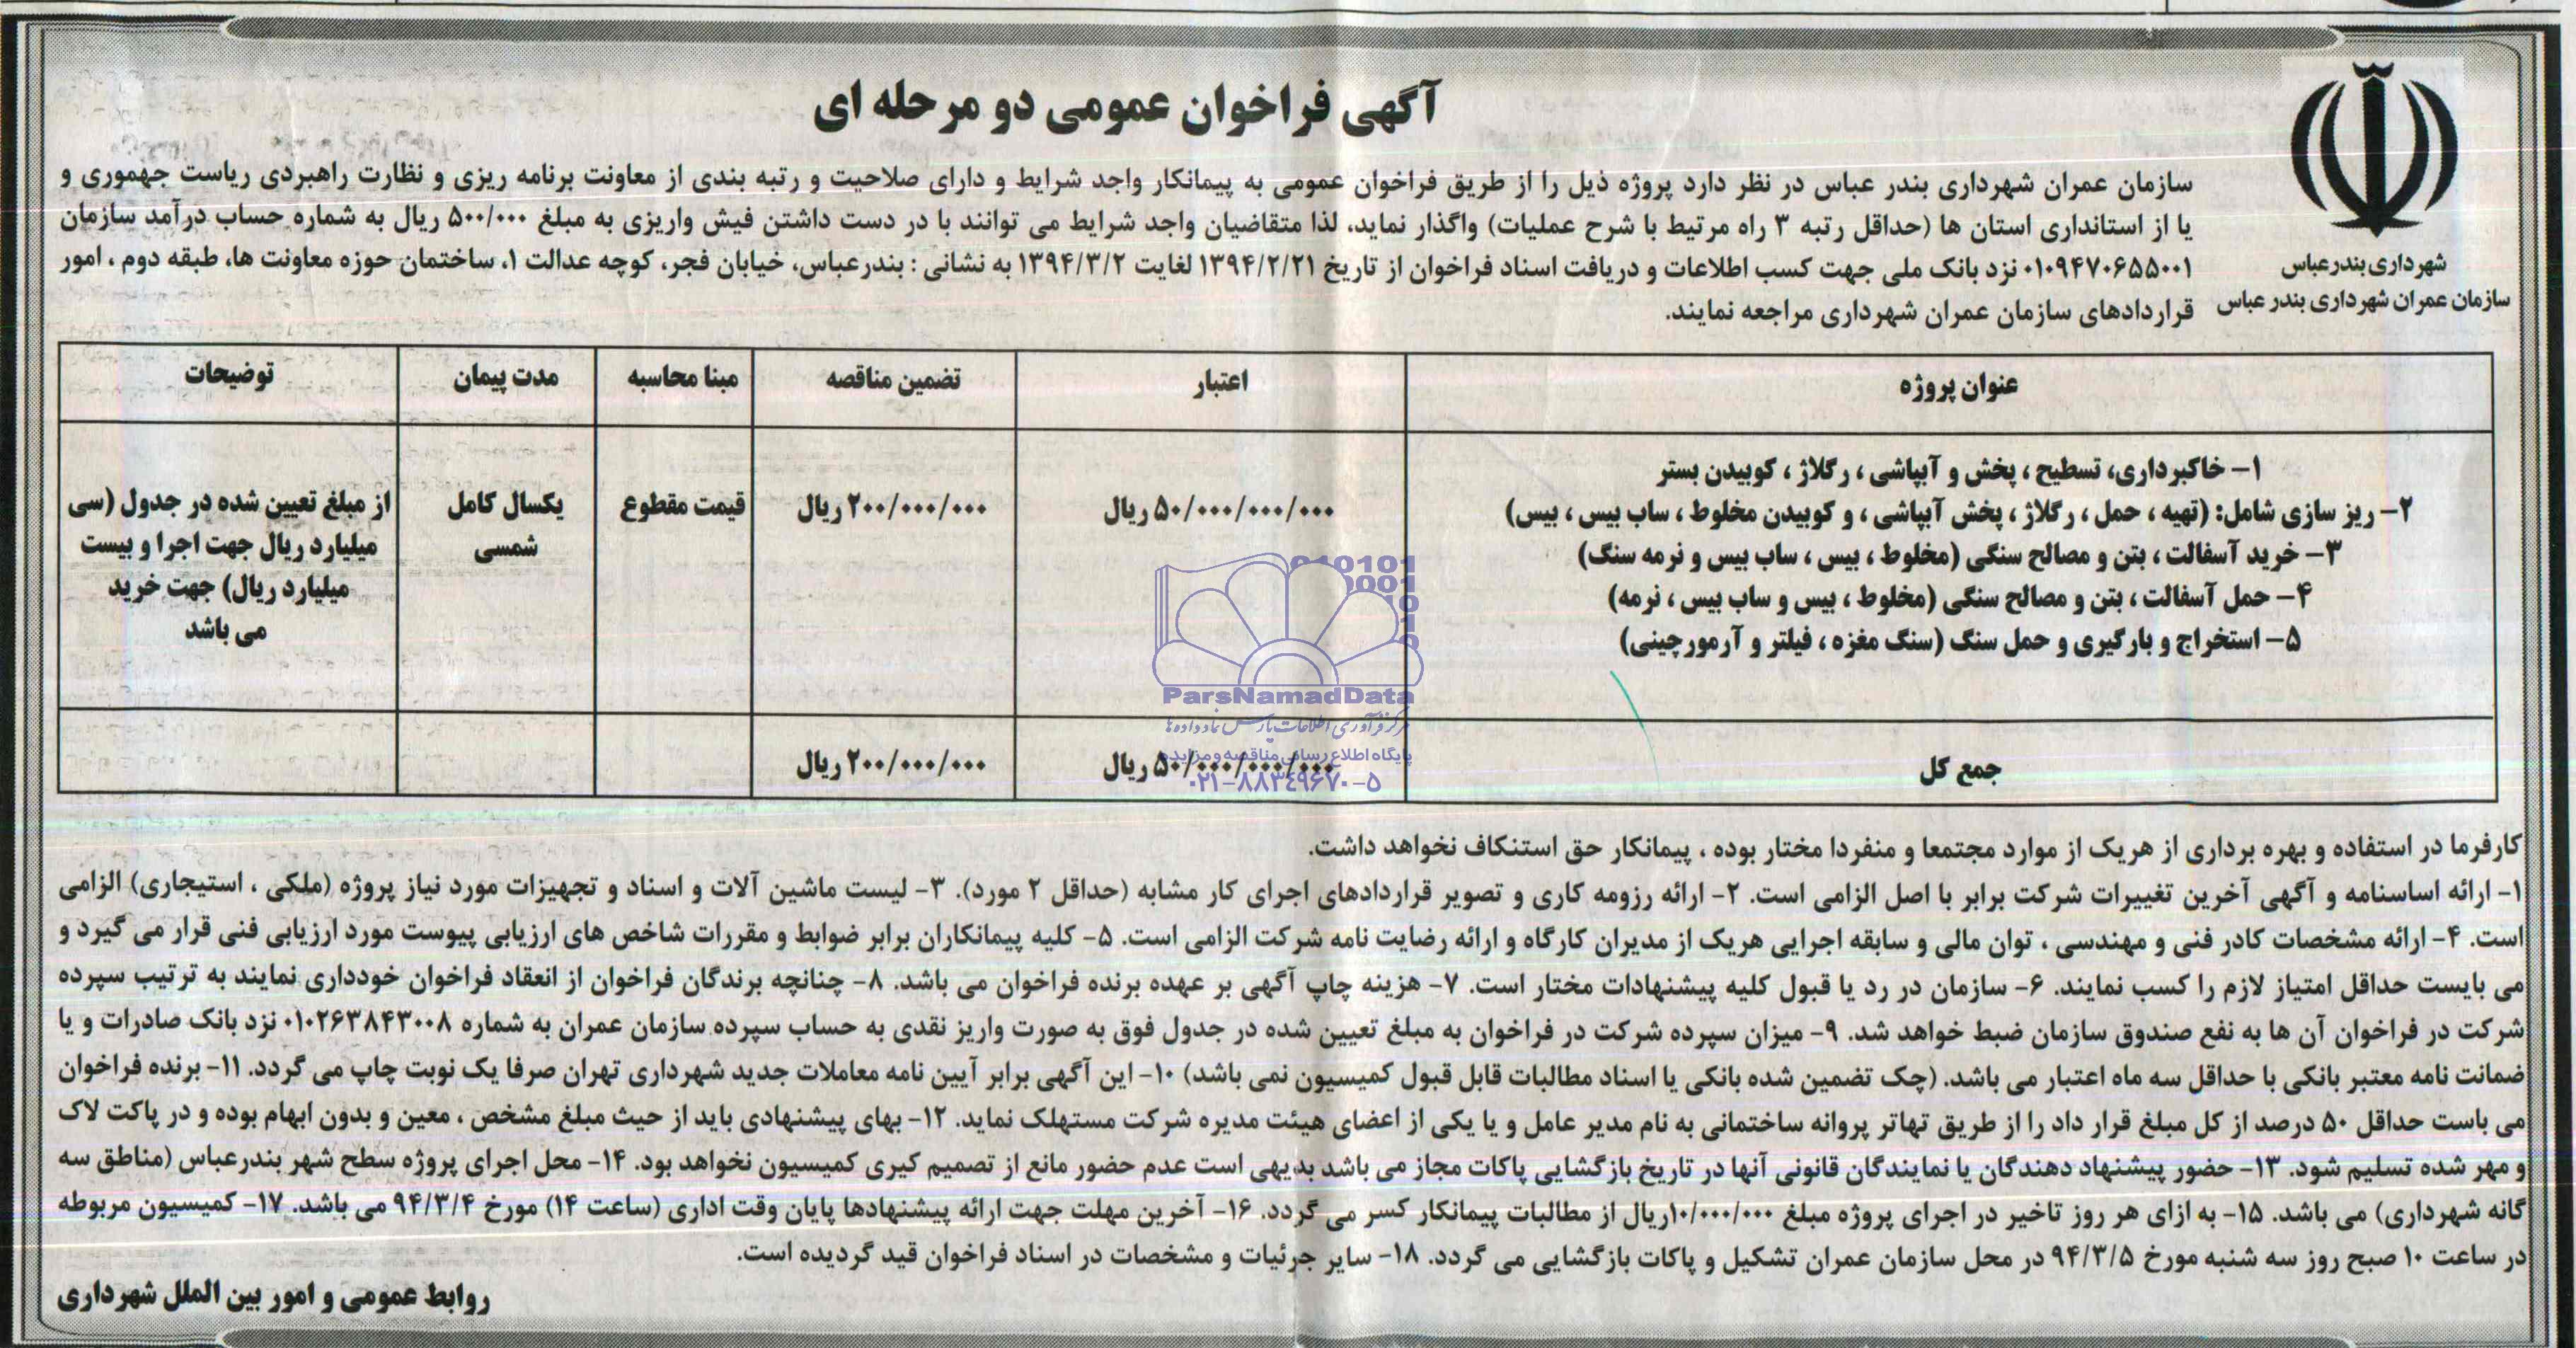 آگهی فراخوان عمومی دو مرحله ای
شهرداری بندرعباس
سازمان عمران شهرداری بندر عباس
سازمان عمران شهرداری بندر عباس در نظر دارد پروژه ذیل را از طریق فراخوان عمومی به پیمانکار واجد شرایط و دارای صلاحیت و رتبه بندی از معاونت برنامه ریزی و نظارت راهبردی ریاست جهموری و
یا از استانداری استان ها (حداقل رتبه ۳ راه مرتبط با شرح عملیات) واگذار نماید، لذا متقاضیان واجد شرایط می توانند با در دست داشتن فیش واریزی به مبلغ ۵۰۰/۰۰۰ ریال به شماره حساب درآمد سازمان
۰۱۰۹۴۷۰۶۵۵۰۰۱ نزد بانک ملی جهت کسب اطلاعات و دریافت اسناد فراخوان از تاریخ ۱۳۹۴/۲/۲۱ لغایت ۱۳۹۴/۳/۲ به نشانی : بندرعباس، خیابان فجر، کوچه عدالت ۱، ساختمان حوزه معاونت ها، طبقه دوم ، امور
قراردادهای سازمان عمران شهرداری مراجعه نمایند.
عنوان پروژه اعتبار تضمین مناقصه مبنا محاسبه مدت پیمان توضیحات
۱- خاکبرداری، تسطیح ، پخش و آبپاشی ، رگلاژ ، کوبیدن بستر
۲- ریز سازی شامل: (تهیه ، حمل ، رگلاژ ، پخش آبپاشی ، و کوبیدن مخلوط ، ساب بیس ، بیس)
۳- خرید آسفالت ، بتن و مصالح سنگی (مخلوط ، بیس ، ساب بیس و نرمه سنگ)
۴- حمل آسفالت ، بتن و مصالح سنگی (مخلوط ، بیس و ساب بیس ، نرمه)
۵- استخراج و بارگیری و حمل سنگ (سنگ مغزه ، فیلتر و آرمورچینی)
۵۰/۰۰۰/۰۰۰/۰۰۰ ریال
۲۰۰/۰۰۰/۰۰۰ ریال
قیمت مقطوع
یکسال کامل
شمسی
از مبلغ تعیین شده در جدول (سی
میلیارد ریال جهت اجرا و بیست
میلیارد ریال) جهت خرید
می باشد
جمع کل ۵۰/۰۰۰/۰۰۰/۰۰۰ ریال ۲۰۰/۰۰۰/۰۰۰ ریال
ParsNamadData
مرکز فرآوری اطلاعات پارس نماد داده ها
پایگاه اطلاع رسانی مناقصه و مزایده
۰۲۱-۸۸۳۴۹۶۷۰-۵
کارفرما در استفاده و بهره برداری از هریک از موارد مجتمعا و منفردا مختار بوده ، پیمانکار حق استنکاف نخواهد داشت.
۱- ارائه اساسنامه و آگهی آخرین تغییرات شرکت برابر با اصل الزامی است. ۲- ارائه رزومه کاری و تصویر قراردادهای اجرای کار مشابه (حداقل ۲ مورد). ۳- لیست ماشین آلات و اسناد و تجهیزات مورد نیاز پروژه (ملکی ، استیجاری) الزامی
است. ۴- ارائه مشخصات کادر فنی و مهندسی ، توان مالی و سابقه اجرایی هریک از مدیران کارگاه و ارائه رضایت نامه شرکت الزامی است. ۵- کلیه پیمانکاران برابر ضوابط و مقررات شاخص های ارزیابی پیوست مورد ارزیابی فنی قرار می گیرد و
می بایست حداقل امتیاز لازم را کسب نمایند. ۶- سازمان در رد یا قبول کلیه پیشنهادات مختار است. ۷- هزینه چاپ آگهی بر عهده برنده فراخوان می باشد. ۸- چنانچه برندگان فراخوان از انعقاد فراخوان خودداری نمایند به ترتیب سپرده
شرکت در فراخوان آن ها به نفع صندوق سازمان ضبط خواهد شد. ۹- میزان سپرده شرکت در فراخوان به مبلغ تعیین شده در جدول فوق به صورت واریز نقدی به حساب سپرده سازمان عمران به شماره ۰۱۰۲۶۳۸۴۳۰۰۸ نزد بانک صادرات و یا
ضمانت نامه معتبر بانکی با حداقل سه ماه اعتبار می باشد. (چک تضمین شده بانکی یا اسناد مطالبات قابل قبول کمیسیون نمی باشد) ۱۰- این آگهی برابر آیین نامه معاملات جدید شهرداری تهران صرفا یک نوبت چاپ می گردد. ۱۱- برنده فراخوان
می باست حداقل ۵۰ درصد از کل مبلغ قرار داد را از طریق تهاتر پروانه ساختمانی به نام مدیر عامل و یا یکی از اعضای هیئت مدیره شرکت مستهلک نماید. ۱۲- بهای پیشنهادی باید از حیث مبلغ مشخص ، معین و بدون ابهام بوده و در پاکت لاک
و مهر شده تسلیم شود. ۱۳- حضور پیشنهاد دهندگان یا نمایندگان قانونی آنها در تاریخ بازگشایی پاکات مجاز می باشد بدیهی است عدم حضور مانع از تصمیم کیری کمیسیون نخواهد بود. ۱۴- محل اجرای پروژه سطح شهر بندرعباس (مناطق سه
گانه شهرداری) می باشد. ۱۵- به ازای هر روز تاخیر در اجرای پروژه مبلغ ۱۰/۰۰۰/۰۰۰ریال از مطالبات پیمانکار کسر می گردد. ۱۶- آخرین مهلت جهت ارائه پیشنهادها پایان وقت اداری (ساعت ۱۴) مورخ ۹۴/۳/۴ می باشد. ۱۷- کمیسیون مربوطه
در ساعت ۱۰ صبح روز سه شنبه مورخ ۹۴/۳/۵ در محل سازمان عمران تشکیل و پاکات بازگشایی می گردد. ۱۸- سایر جرئیات و مشخصات در اسناد فراخوان قید گردیده است.
روابط عمومی و امور بین الملل شهرداری